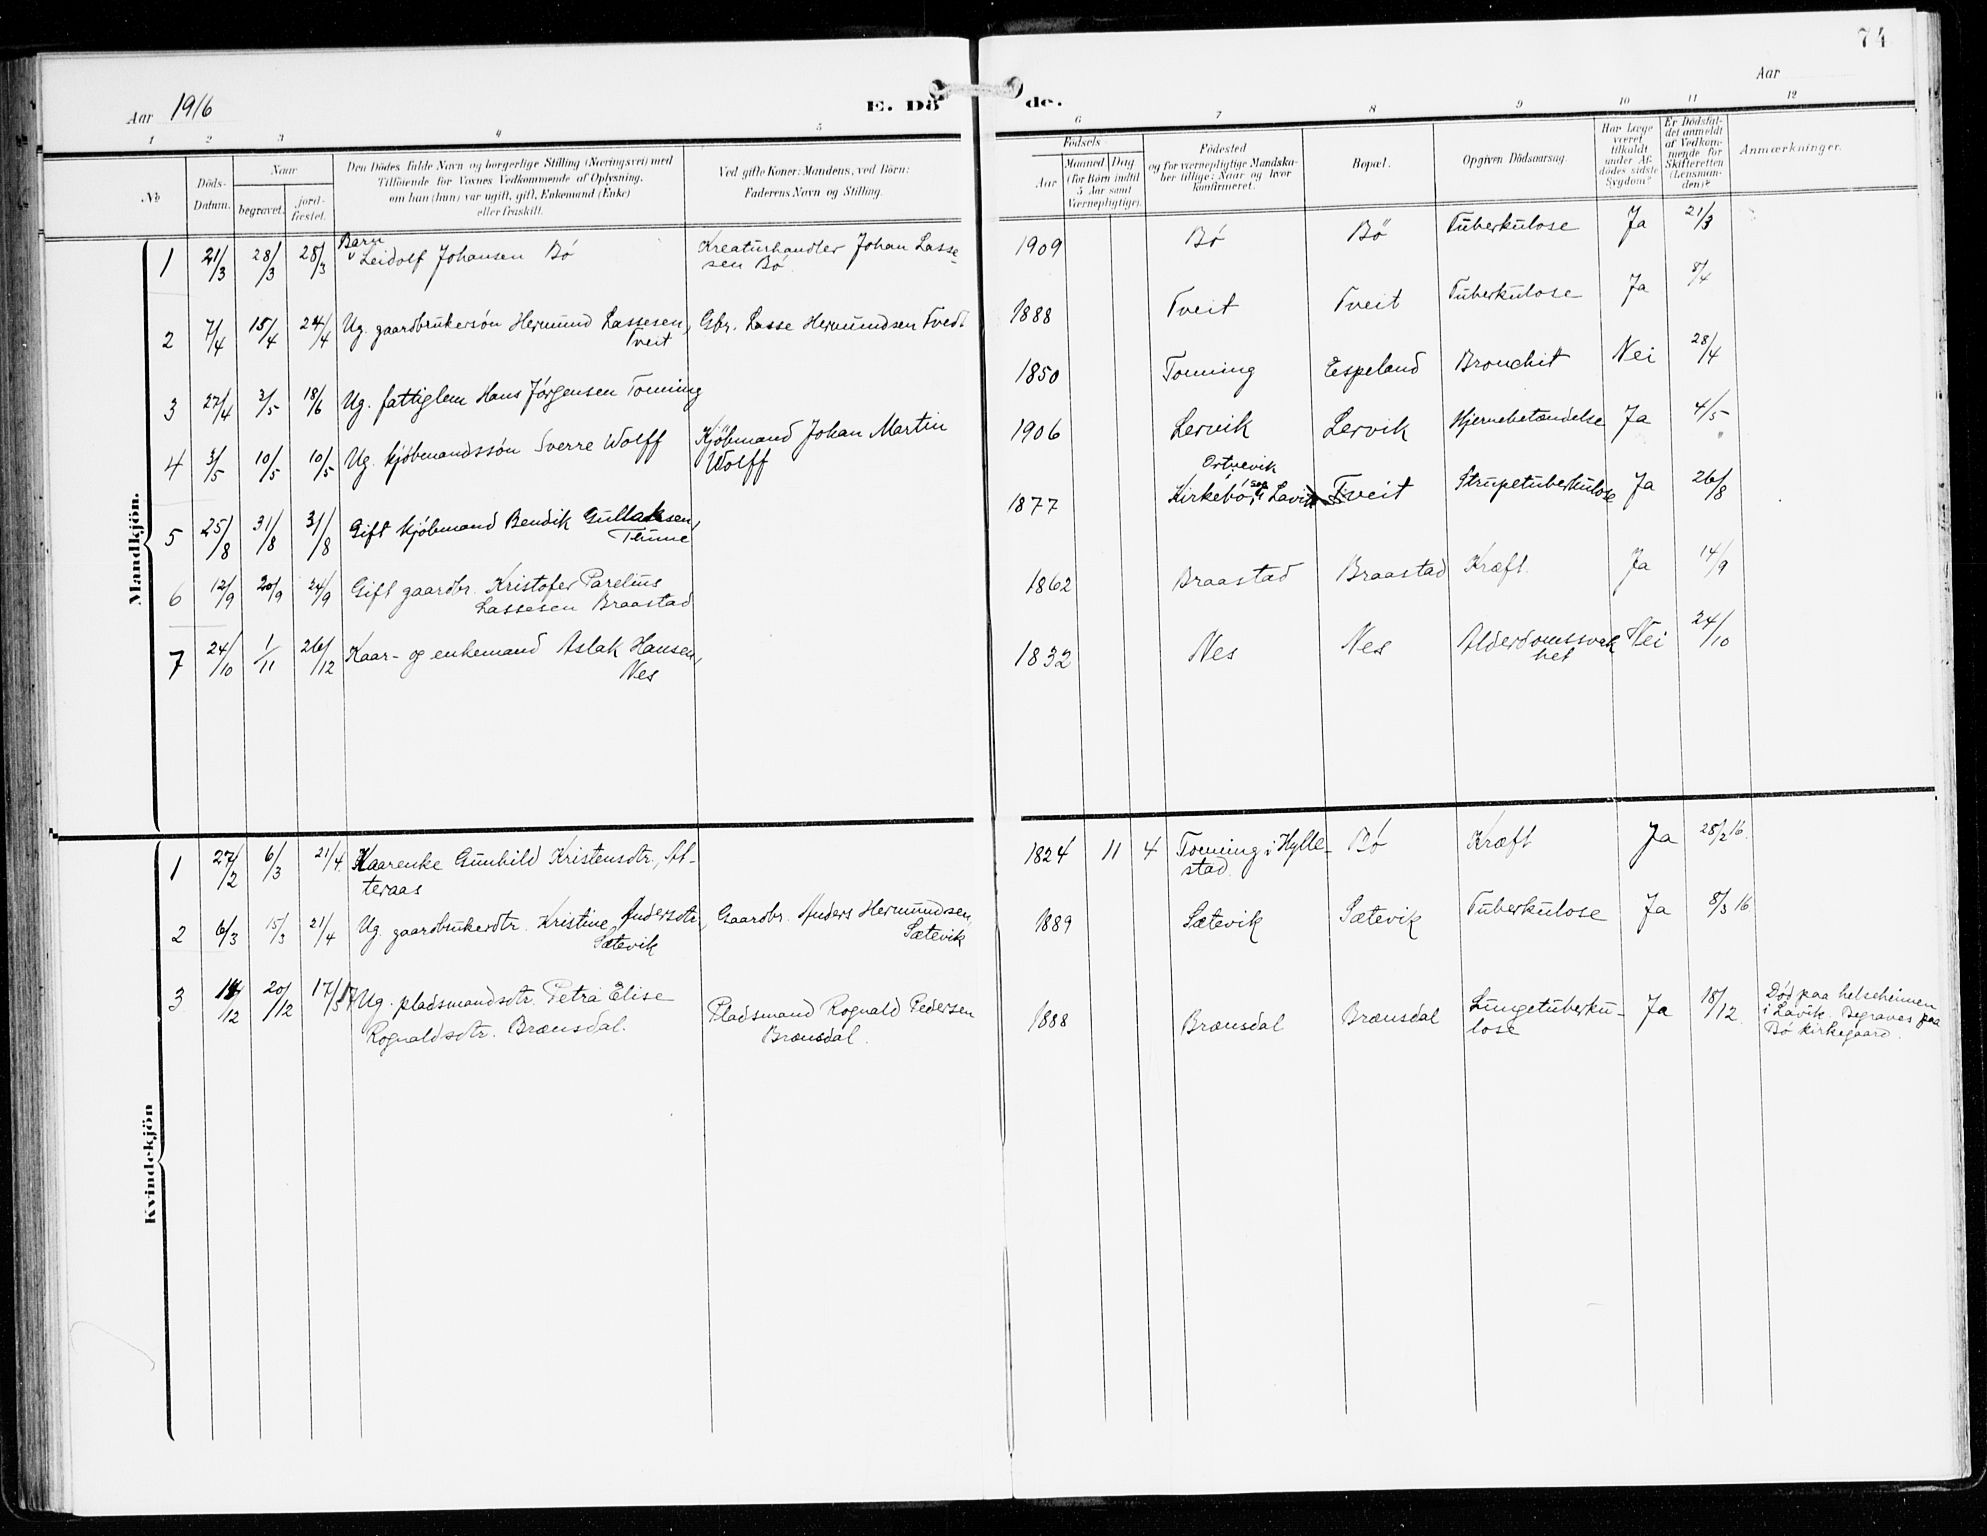 74
Aar 1916
E. Dö de.
Aar
1 2 3 4 5 6 7 8 9 10 11 12
No
Döds-Datum.
Naar
begravet.
jord-fæstet.
Den Dödes fulde Navn og borgerlige Stilling (Næringsvei) med
Tilföiende for Voxnes Vedkommende af Oplysning,
om han (hun) var ugift, gift, Enkemand (Enke)
eller fraskilt.
Ved gifte Koner: Mandens, ved Börn:
Faderens Navn og Stilling.
Födsels
Aar
Maaned Dag
(for Börn indtil
5 Aar samt
Værnepligtige).
Födested
og for værnepligtige Mandska-
ber tillige: Naar og hvor
konfirmeret.
Bopæl.
Opgiven Dödsaarsag.
Har Læge
været
tilkaldt
under Af-
dödes sidste
Sygdom?
Er Dödsfal-
det anmeldt
af Vedkom-
mende for
Skifteretten
(Lensman-
den)?
Anmærkninger.
Mandkjön.
1 21/3 28/3 28/3 Barn Leidolf Johansen Bö Kreaturhandler Johan Lasse-
sen Bö. 1909 Bö Bö Tuberkulose Ja 21/3
2 7/4 15/4 24/4 Ug. gaardbrukersön Hermund Lassesen, Gbr. Lasse Hermundsen Tvedt 1888 Tveit Tveit Tuberkulose Ja 8/4
Tveit
3 27/4 3/5 18/6 Ug. fattiglem Hans Jörgensen Tonning 1850 Tonning Espeland Bronchit Nei 28/4
4 3/5 10/5 10/5 Ug. kjöbmandssön Sverre Wolff Kjöbmand Johan Martin
Wolff 1906 Lervik Lervik Hjernebetændelse Ja 4/5
5 25/8 31/8 31/8 Gift kjöbmand Bendik Gullaksen, 1877 Ortnevik
Kirkebö, sogn Lavik Tveit Strupetuberkulose Ja 26/8
Thune
6 12/9 20/9 24/9 Gift gaardbr. Kristofer Parelius
Lassesen Braastad 1862 Braastad Braastad Kræft. Ja 14/9
7 24/10 1/11 26/12 Kaar- og enkemand Aslak Hansen,
Nes 1832 Nes Nes Alderdomssvak
het Nei 24/10
Kvindekjön
1 27/2 6/3 21/4. Kaarenke Gunhild Kristensdtr., At-
teraas 1824 11 4 Tonning i Hylle-
stad. Bö Kræft Ja 28/2 16.
2 6/3 15/3 21/4 Ug. gaardbrukerdtr. Kristine Andersdtr, Gaardbr. Anders Hermundsen,
Sætevik Sætevik 1889 Sætevik Sætevik Tuberkulose Ja 8/3 16
3 14/12 20/12 17/5 17 Ug. pladsmandsdtr. Petra Elise
Rognaldsdtr. Brænsdal. Pladsmand Rognald Pedersen
Brænsdal. 1888 Brænsdal Brænsdal Lungetuberku-
lose Ja 18/12. Död paa helseheimen
i Lavik. Begraves paa
Bö kirkegaard.